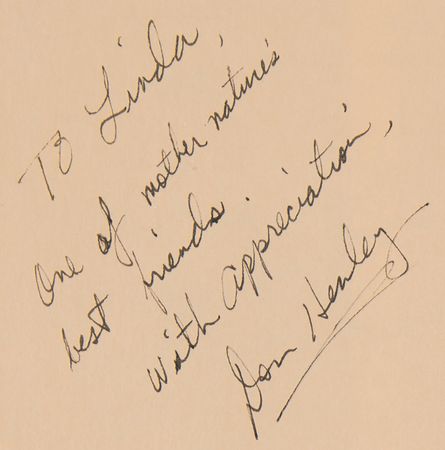 To Linda,
One of mother nature's
best friends.
With appreciation,
Don Henley